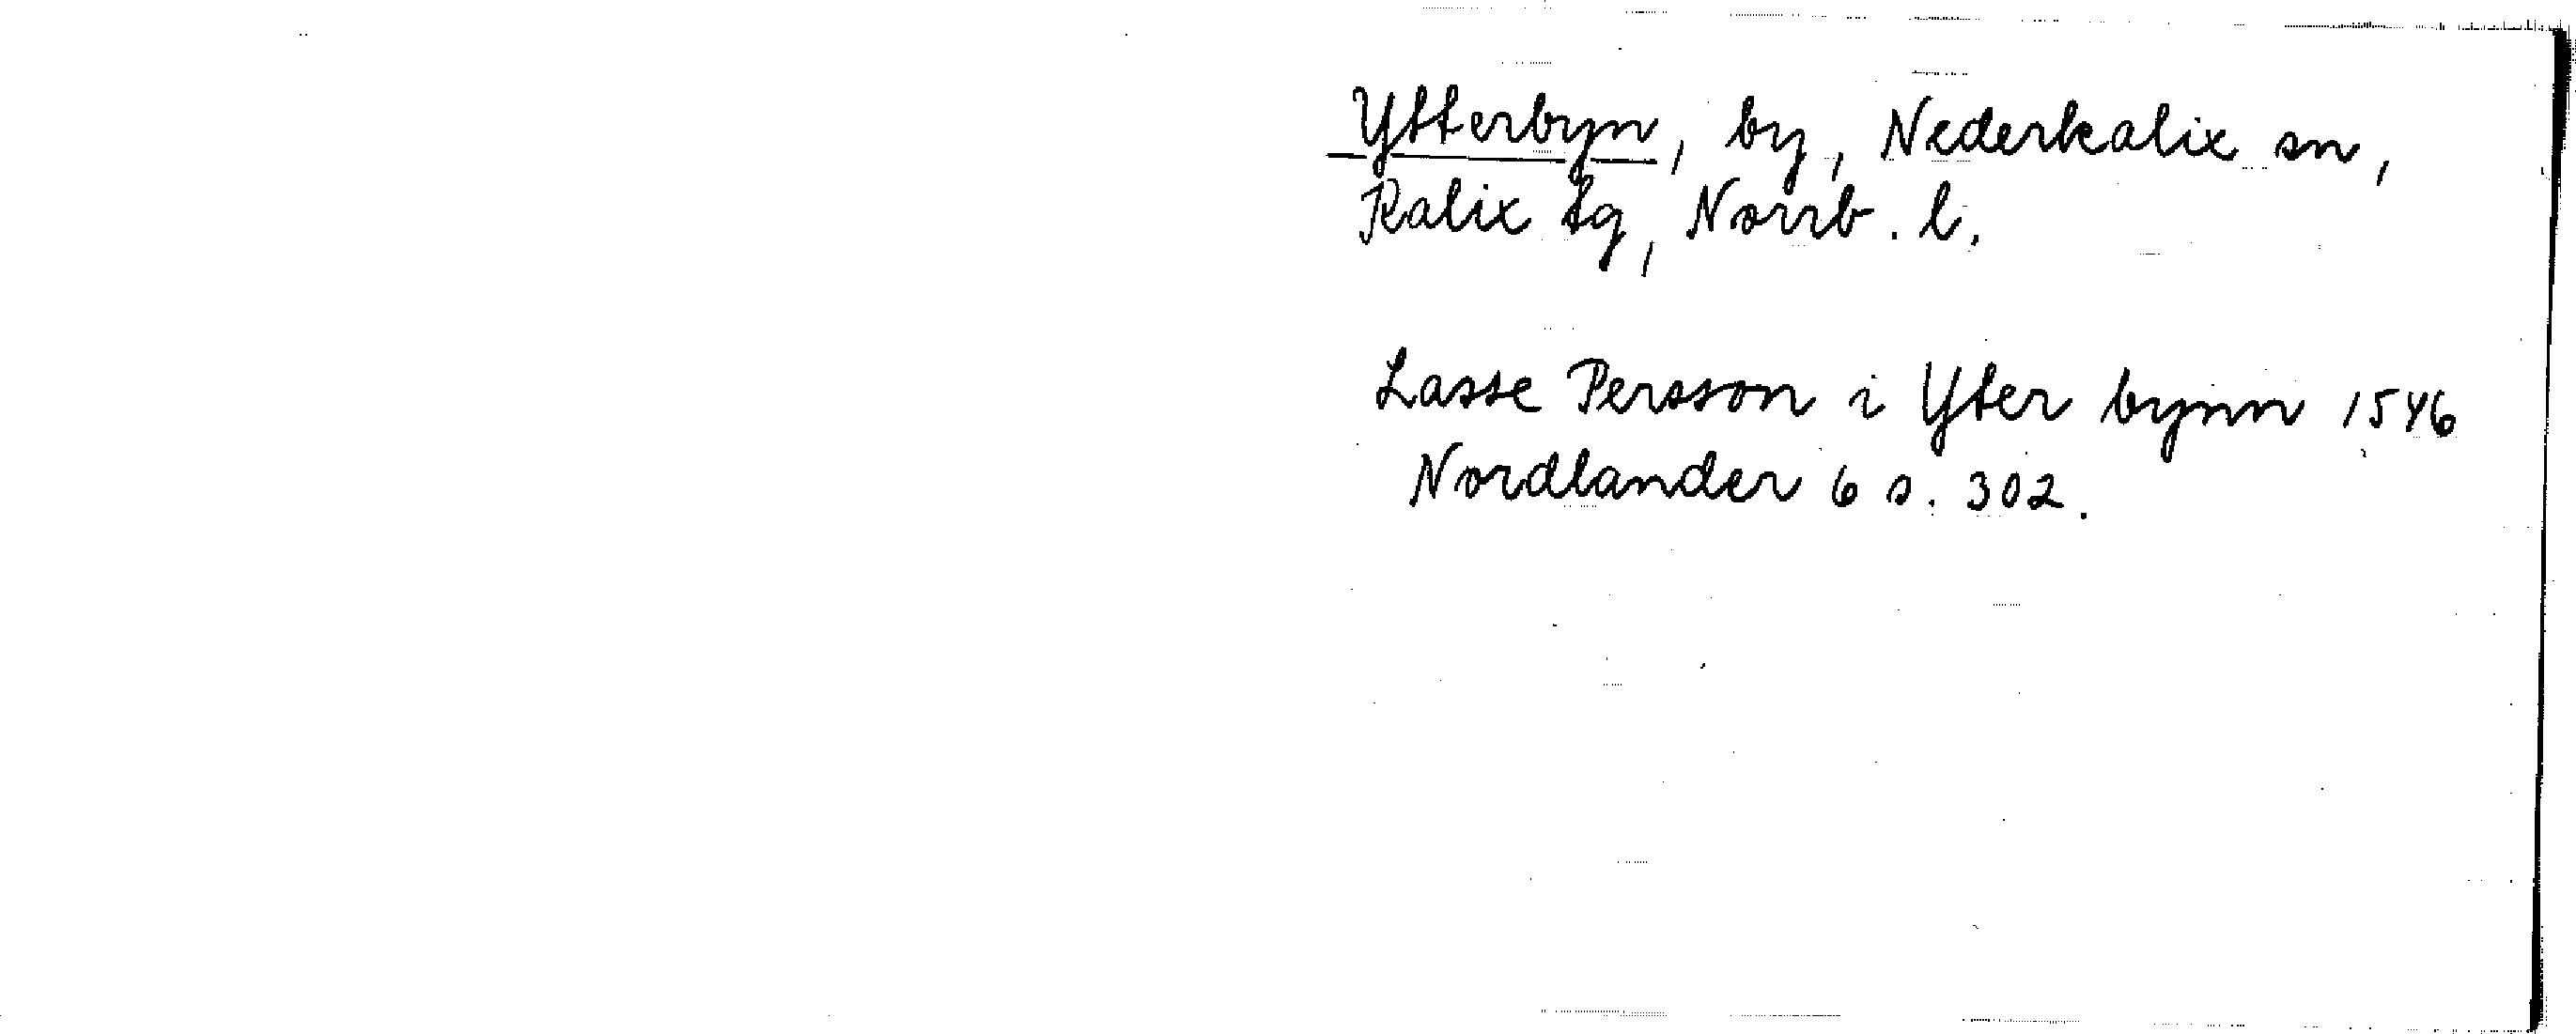 Ytterbyn, by, Nederkalix sn,
Kalix tg, Norrb. l.
Lasse Persson i Yter bynn 1546
Nordlander 6 s. 302.